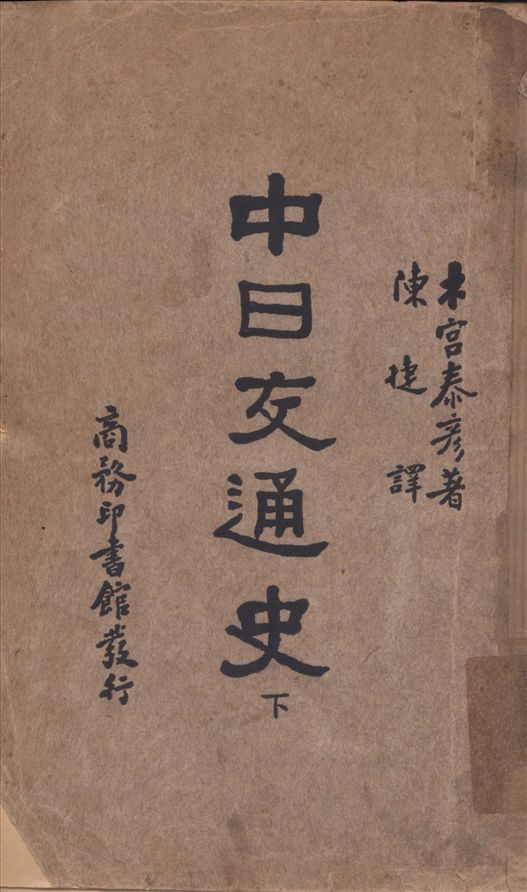 木宮泰彥著
陳捷譯
中日交通史
下
商務印書館發行